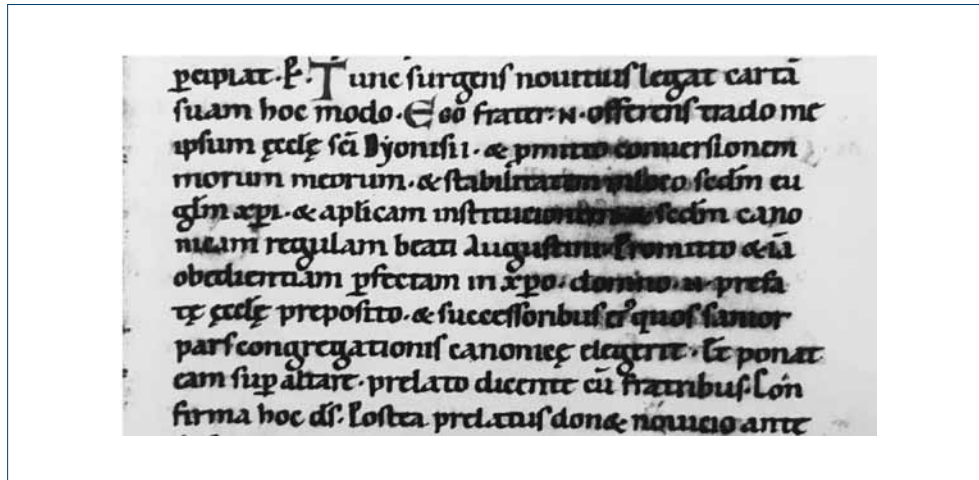 p̱cipiat · ꝶ · Tunc surgens nouitius legat cartā
suam hoc modo · Ego frater · N · offerens trado me
ipsum ęcclę sc̄i Dyonisii · & ꝓmitto conuersionem
morum meorum · & stabilitatem in loco secdm̄ eu
glm̄ xp̄i · & aplicam institucionem secdm̄ cano
nicam regulam beati Augustini · Promitto & iā
obedientiam ꝑfectam in xp̄o · domno · N · prefa
tę ęcclę preposito · & successoribus ei᾽ quos sanior
pars congregationis canonicę elegerit · Et ponat
eam suꝑ altare · prelato dicente cū fratribus · Con
firma hoc ds̄ · Postea prelatus don& nouicio antę